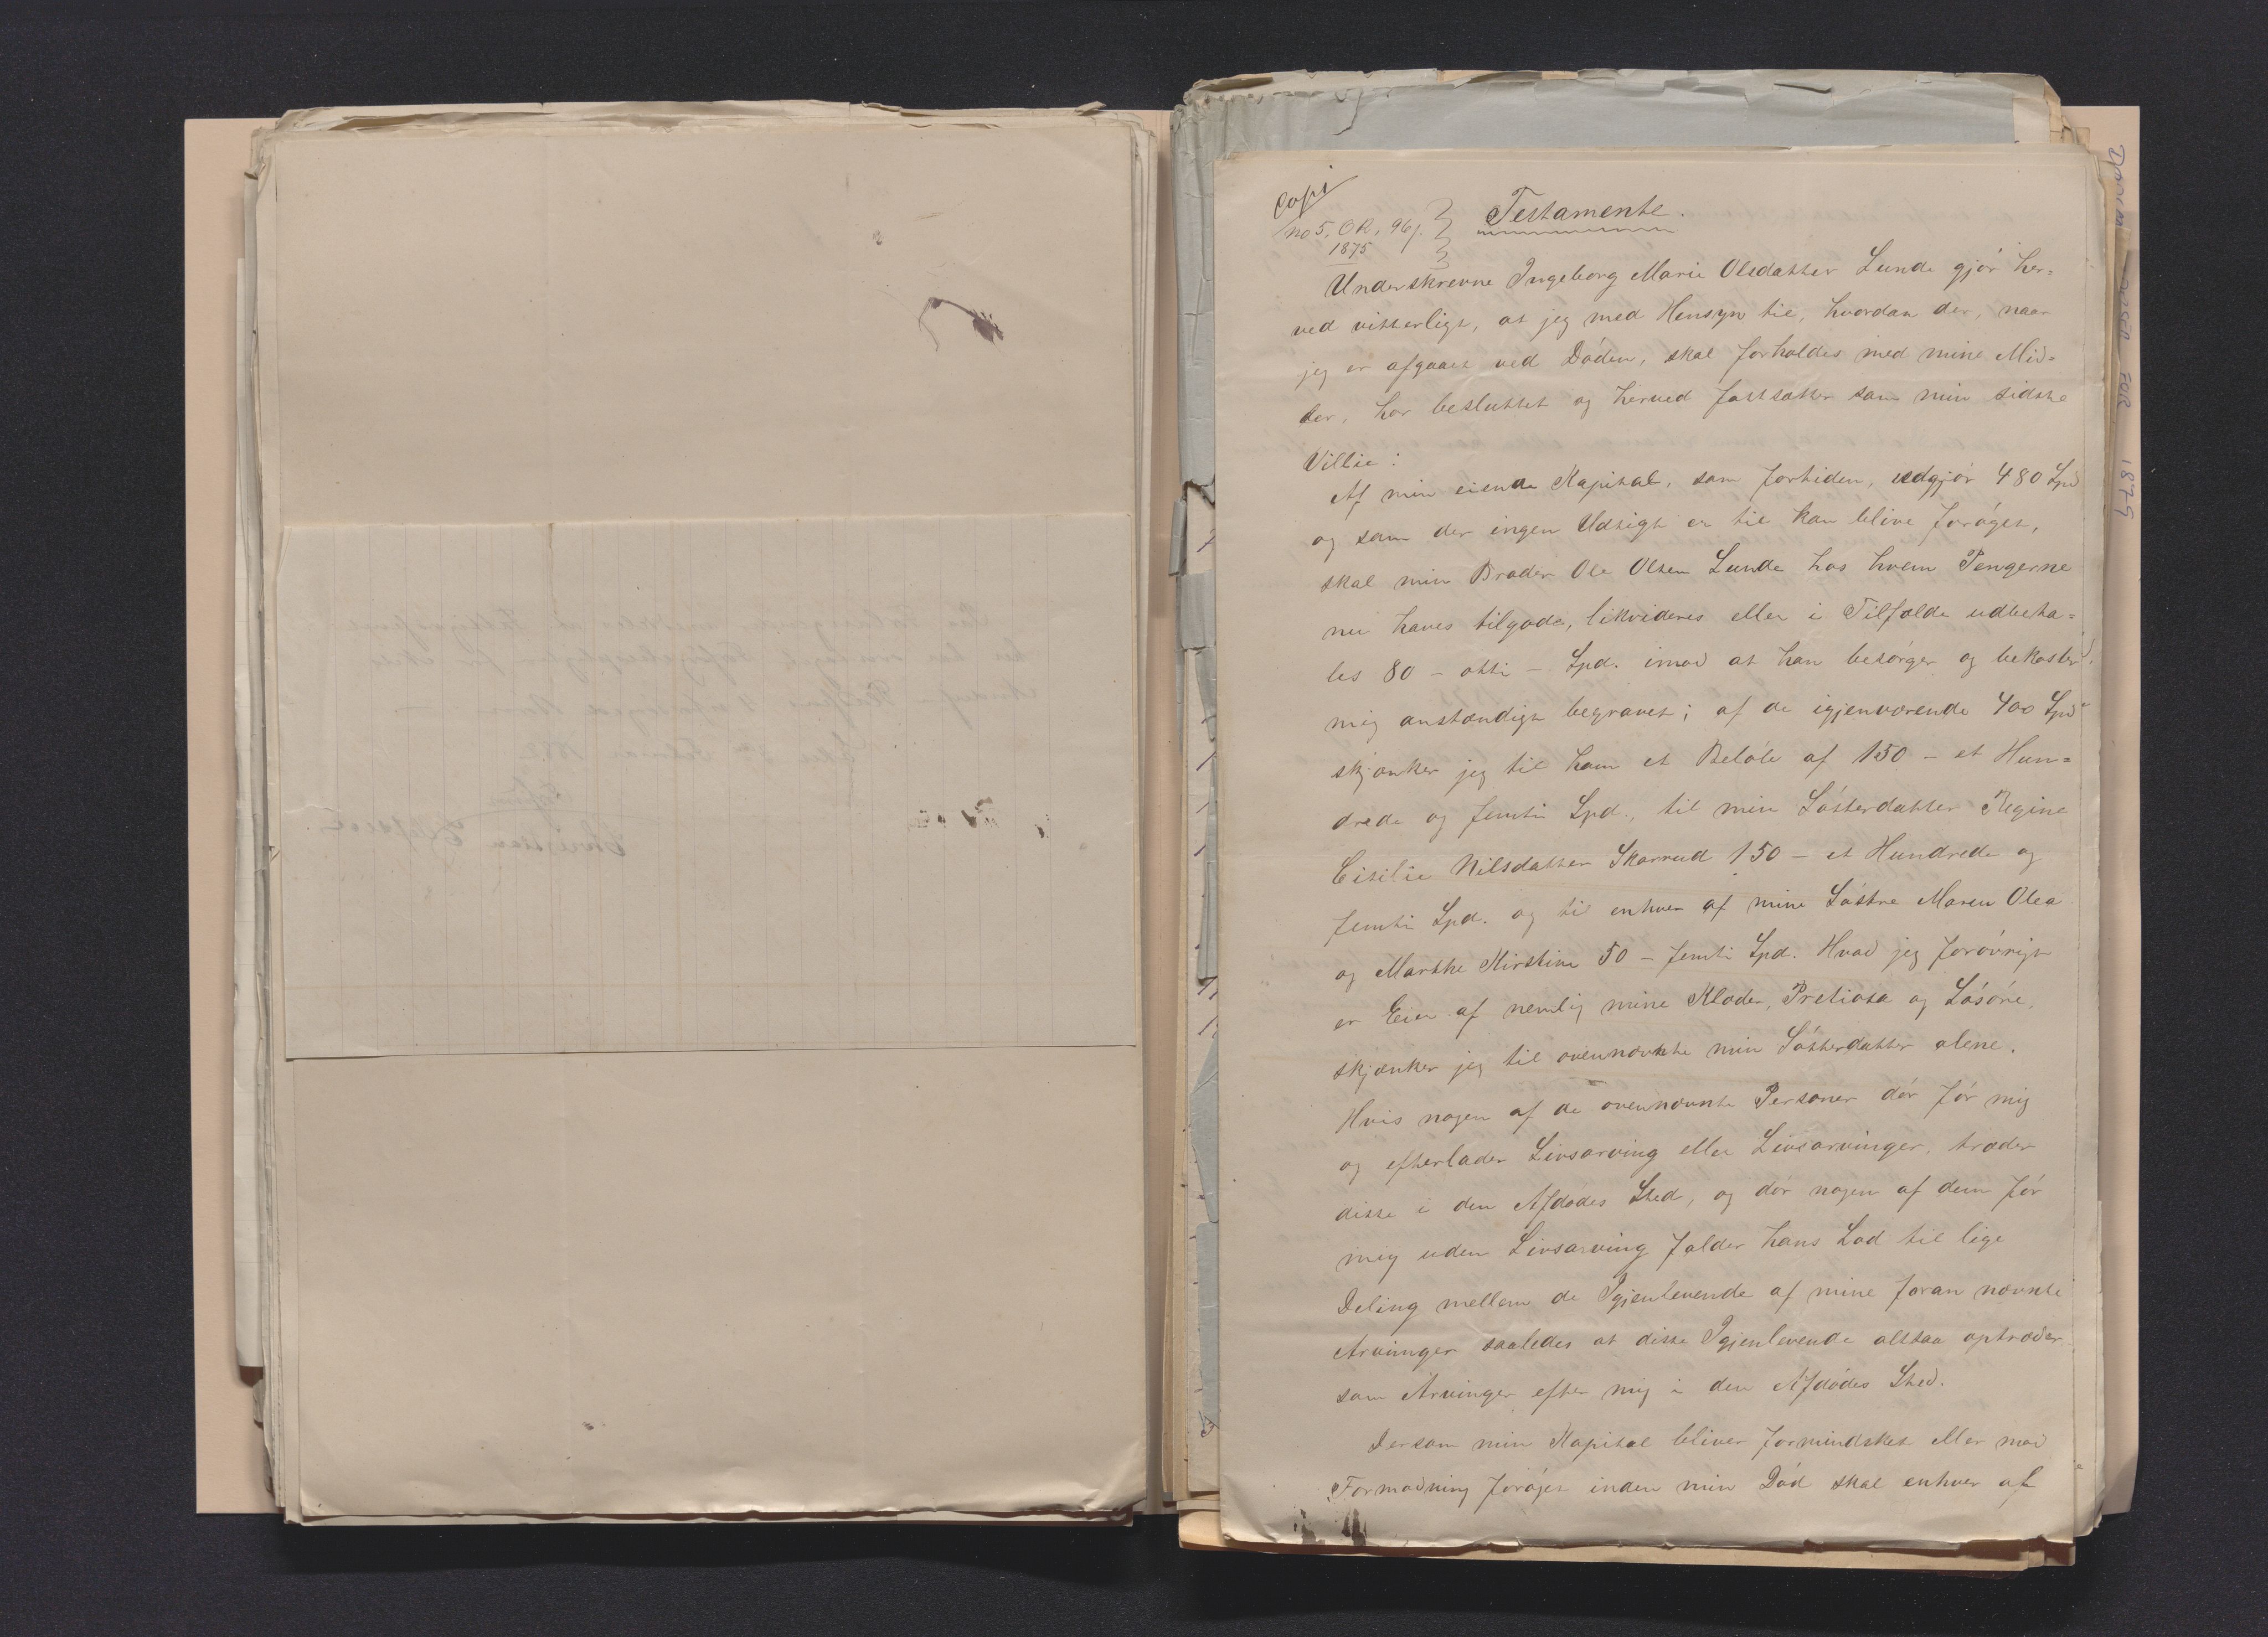 Copi
no 5, OR, 96/.
1875
Testamente.
Underskrevne Ingeborg Marie Olsdatter Lunde gjör her=
ved vitterligt, at jeg med Hensyn til, hvordan der, naar
jeg er afgaaet ved Döden, skal forholdes med mine Mid=
der, har besluttet og herved fastsætter som min sidste
Villie:
Af min eiende Kapital, som fortiden, udgjör 480 Spd
og som der ingen Udsigt er til kan blive foröget,
skal min Broder Ole Olsen Lunde hos hvem Pengerne
nu haves tilgode, likvideres eller i Tilfælde udbeta=
les 80 - otti - Spd. imod at han besörger og bekoster
mig anstændigt begravet; af de igjenværende 400 Spd
skjænker jeg til ham et Belöb af 150 - et Hun=
drede og femti Spd., til min Sösterdatter Regine
Cisilie Nilsdatter Skarrud 150 - et Hundrede og
femti Spd. og til enhver af mine Söstre Maren Olea
og Marthe Kirstine 50 - femti Spd. Hvad jeg forövrigt
er Eier af nemlig mine Klæder, Pretiosa og Lösöre,
skjænker jeg til ovennævnte min Sösterdatter alene.
Hvis nogen af de ovennævnte Personer dör för mig
og efterlader Livsarving eller Livsarvinger, træder
disse i den Afdödes Sted, og dör nogen af dem för
mig uden Livsarving falder hans Lod til lige
Deling mellem de Igjenlevende af mine foran nævnte
Arvinger saaledes at disse Igjenlevende altsaa optræder
som Arvinger efter mig i den Afdödes Sted.
Dersom min Kapital bliver formindsket eller mod
Formodning foröget inden min Död skal enhver af
1879